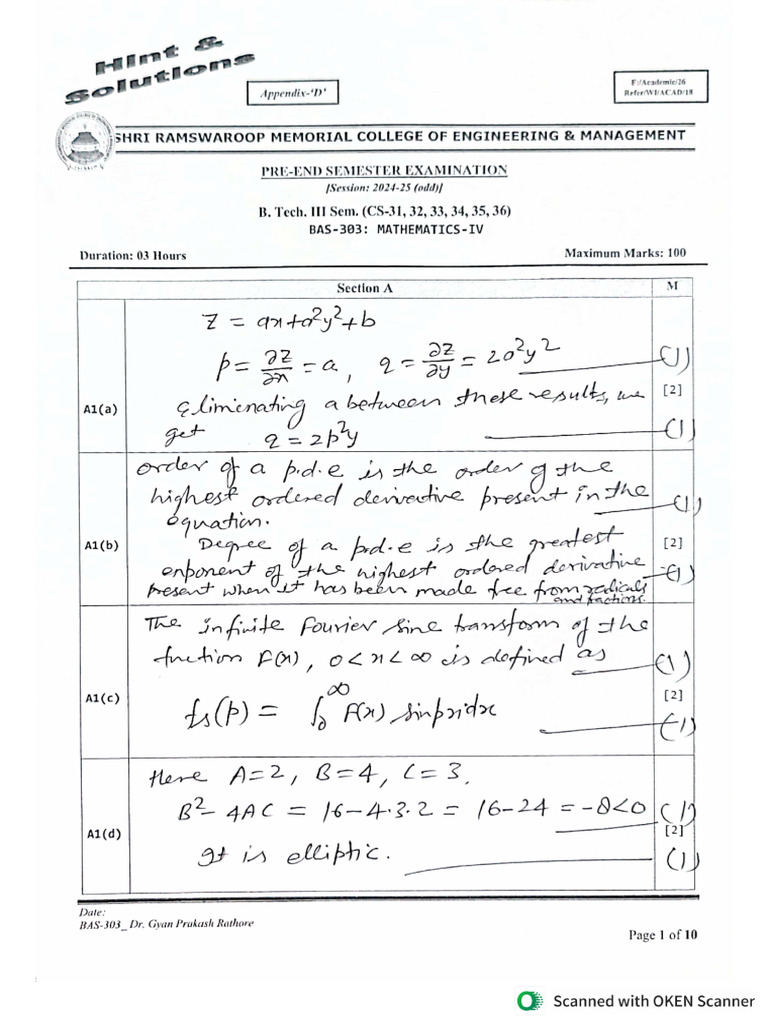 Hint &
Solutions
Appendix-'D'
F:/Academic/26
Refer/WI/ACAD/18
SHRI RAMSWAROOP MEMORIAL COLLEGE OF ENGINEERING & MANAGEMENT
PRE-END SEMESTER EXAMINATION
[Session: 2024-25 (odd)]
B. Tech. III Sem. (CS-31, 32, 33, 34, 35, 36)
BAS-303: MATHEMATICS-IV
Duration: 03 Hours Maximum Marks: 100
Section A M
A1(a)
Z = ax+a²y²+b
p = ∂z/∂x = a, q = ∂z/∂y = 2a²y² (1)
[2]
Eliminating a between these results, we
get q = 2p²y (1)
A1(b)
order of a p.d.e is the order of the
highest ordered derivative present in the (1)
equation.
[2]
Degree of a p.d.e is the greatest
exponent of the highest ordered derivative (1)
present when it has been made free from radicals
and fractions.
A1(c)
The infinite Fourier sine transform of the
function F(x), 0<x<∞ is defined as (1)
[2]
fs(p) = ∫₀^∞ F(x) sinpx dx (1)
A1(d)
Here A=2, B=4, C=3.
B²-4AC = 16-4.3.2 = 16-24 = -8<0 (1)
[2]
It is elliptic. (1)
Date:
BAS-303_ Dr. Gyan Prakash Rathore
Page 1 of 10
Scanned with OKEN Scanner